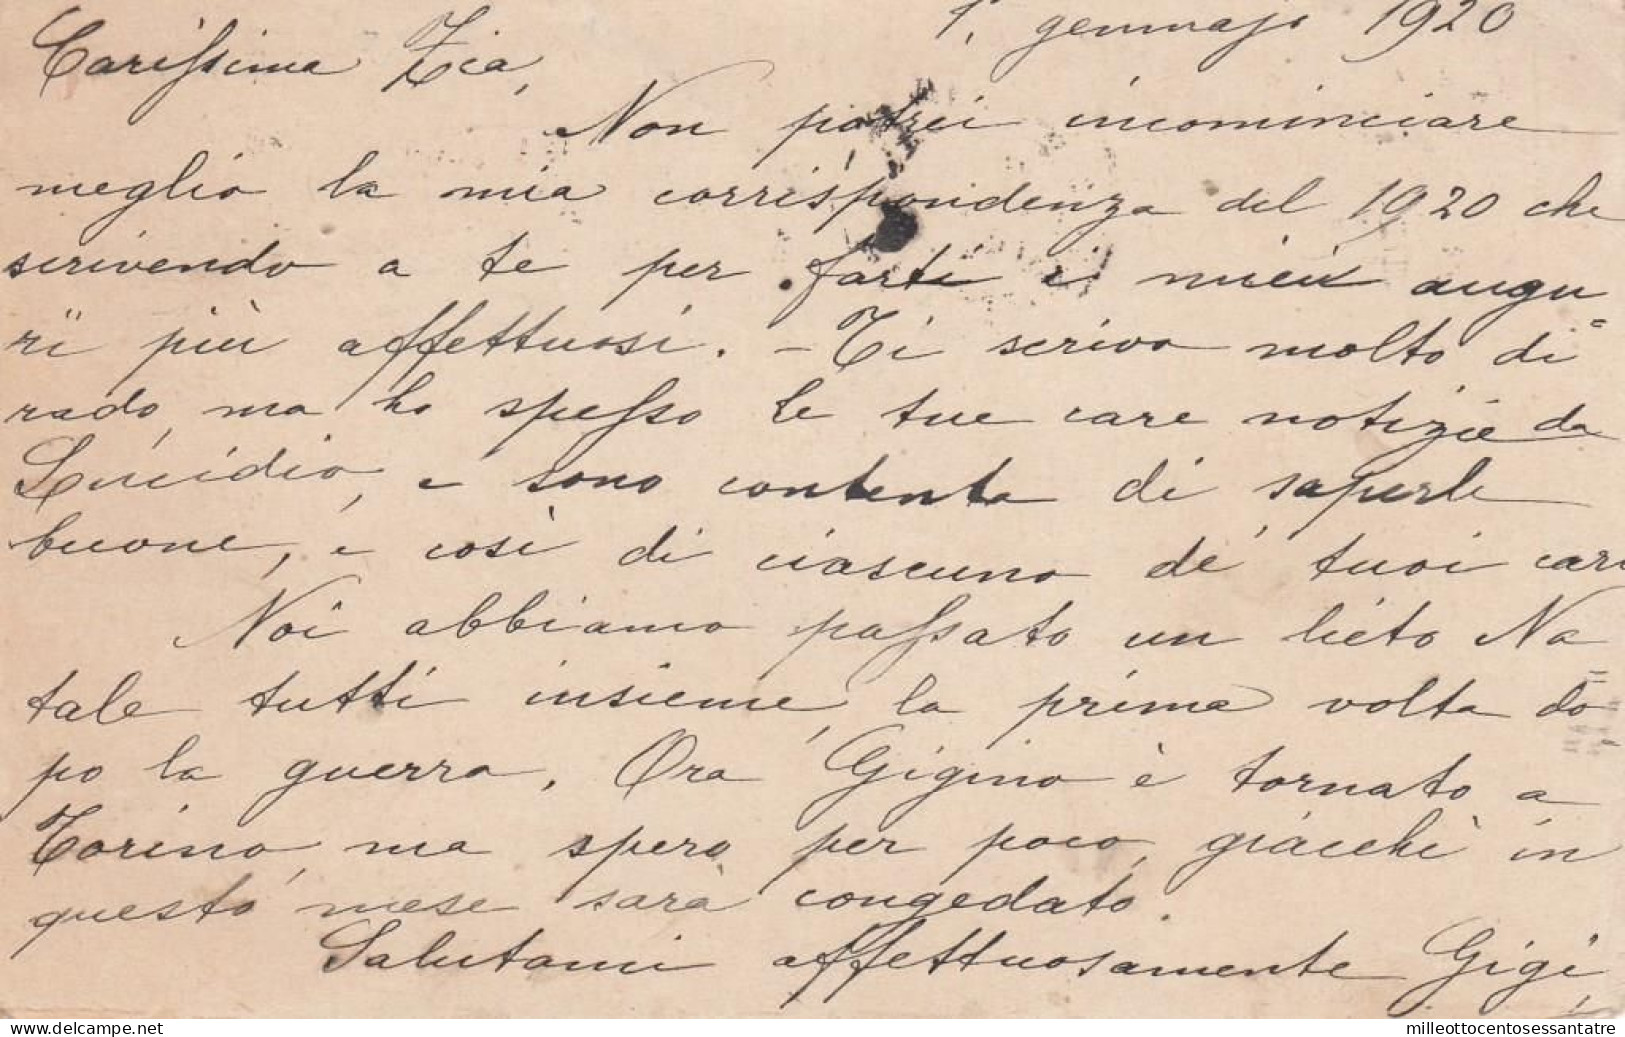 1. gennajo 1920
Carissima Zia,
Non potrei incominciare
meglio la mia corrispondenza del 1920 che
scrivendo a te per farti i miei augu
rii più affettuosi. – Ti scrivo molto di =
rado, ma ho spesso le tue care notizie da
Lucidio, e sono contenta di saperle
buone, e così di ciascuno de' tuoi cari
Noi abbiamo passato un lieto Na
tale tutti insieme, la prima volta do =
po la guerra. Ora Gigino è tornato a
Torino, ma spero per poco, giacchè in
questo mese sarà congedato.
Salutami affettuosamente Gigi,
milleottocentosessantatre
www.delcampe.net